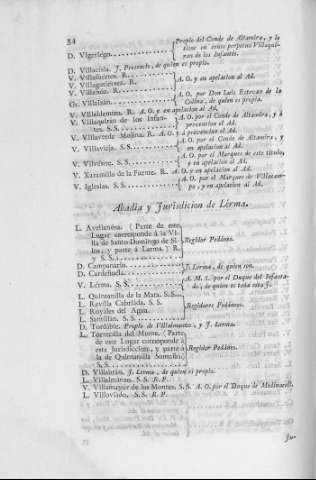 84
D. Vigerlegn..... Propio del Conde de Altamira, y lo
tiene en censo perpetuo Villaqui-
ran de los Infantes.
D. Villacisla. J. Pecande, de quien es propio.
V. Villafuertes. R.
V. Villagutierrez. R. A. O. y en apelacion al Ad.
V. Villahán. R.
Gr. Villalain..... A. O. por Don Luis Estevan de la
Colina, de quien es propia.
V. Villaldemiro. R. A. O. y en apelacion al Ad.
V. Villaquiran de los Infan-
tes. S. S..... A. O. por el Conde de Altamira, y à
prevencion el Ad.
V. Villaverde Mogina. R. A. O. y à prevencion el Ad.
V. Villavieja. S. S..... A. O. por el Conde de Altamira, y
en apelacion al Ad.
V. Villafane. S. S..... A. O. por el Marques de este titulo,
y en apelacion al Ad.
V. Xaramillo de la Fuente. R. A. O. y en apelacion al Ad.
V. Iglesias. S. S..... A. O. por el Marques de Villacam-
po, y en apelacion al Ad.
Abadia y Jurisdicion de Lerma.
L. Avellanosa. (Parte de este
Lugar corresponde à la Vi-
lla de Santo Domingo de Si-
los, y parte à Lerma.) R.
y S. S..... Regidor Pedáneo.
D. Campanario.
D. Cardeñuela. J. Lerma, de quien son.
V. Lerma. S. S..... A. M. S. por el Duque del Infanta-
do, de quien es toda esta J.
L. Quintanilla de la Mata. S. S.
L. Revilla Cabriada. S. S.
L. Royales del Agua. Regidores Pedáneos.
L. Santillan. S. S.
D. Tordable. Propio de Villalmanzo, y J. Lerma.
L. Torrecilla del Monte. (Parte
de este Lugar corresponde à
esta Jurisdiccion, y parte à
la de Quintanilla
S. S..... Regidor Pedáneo.
D. Villaizan. J. Lerma, de quien es propio.
L. Villalmanzo. S. S. R. P.
V. Villamayor de los Montes. S. S. A. O. por el Duque de Medinaceli.
L. Villoviado. S. S. R. P.
Ju-